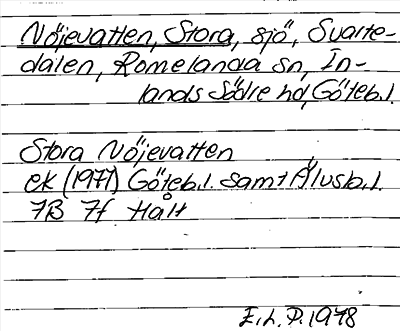 Nöjevatten, Stora, sjö, Svarte-
dalen, Romelanda sn, In-
lands Södre hd, Göteb.l.
Stora Nöjevatten
ek (1971) Göteb.l. samt Älvsb.l.
7B 7f Hålt
E.L.P. 1978